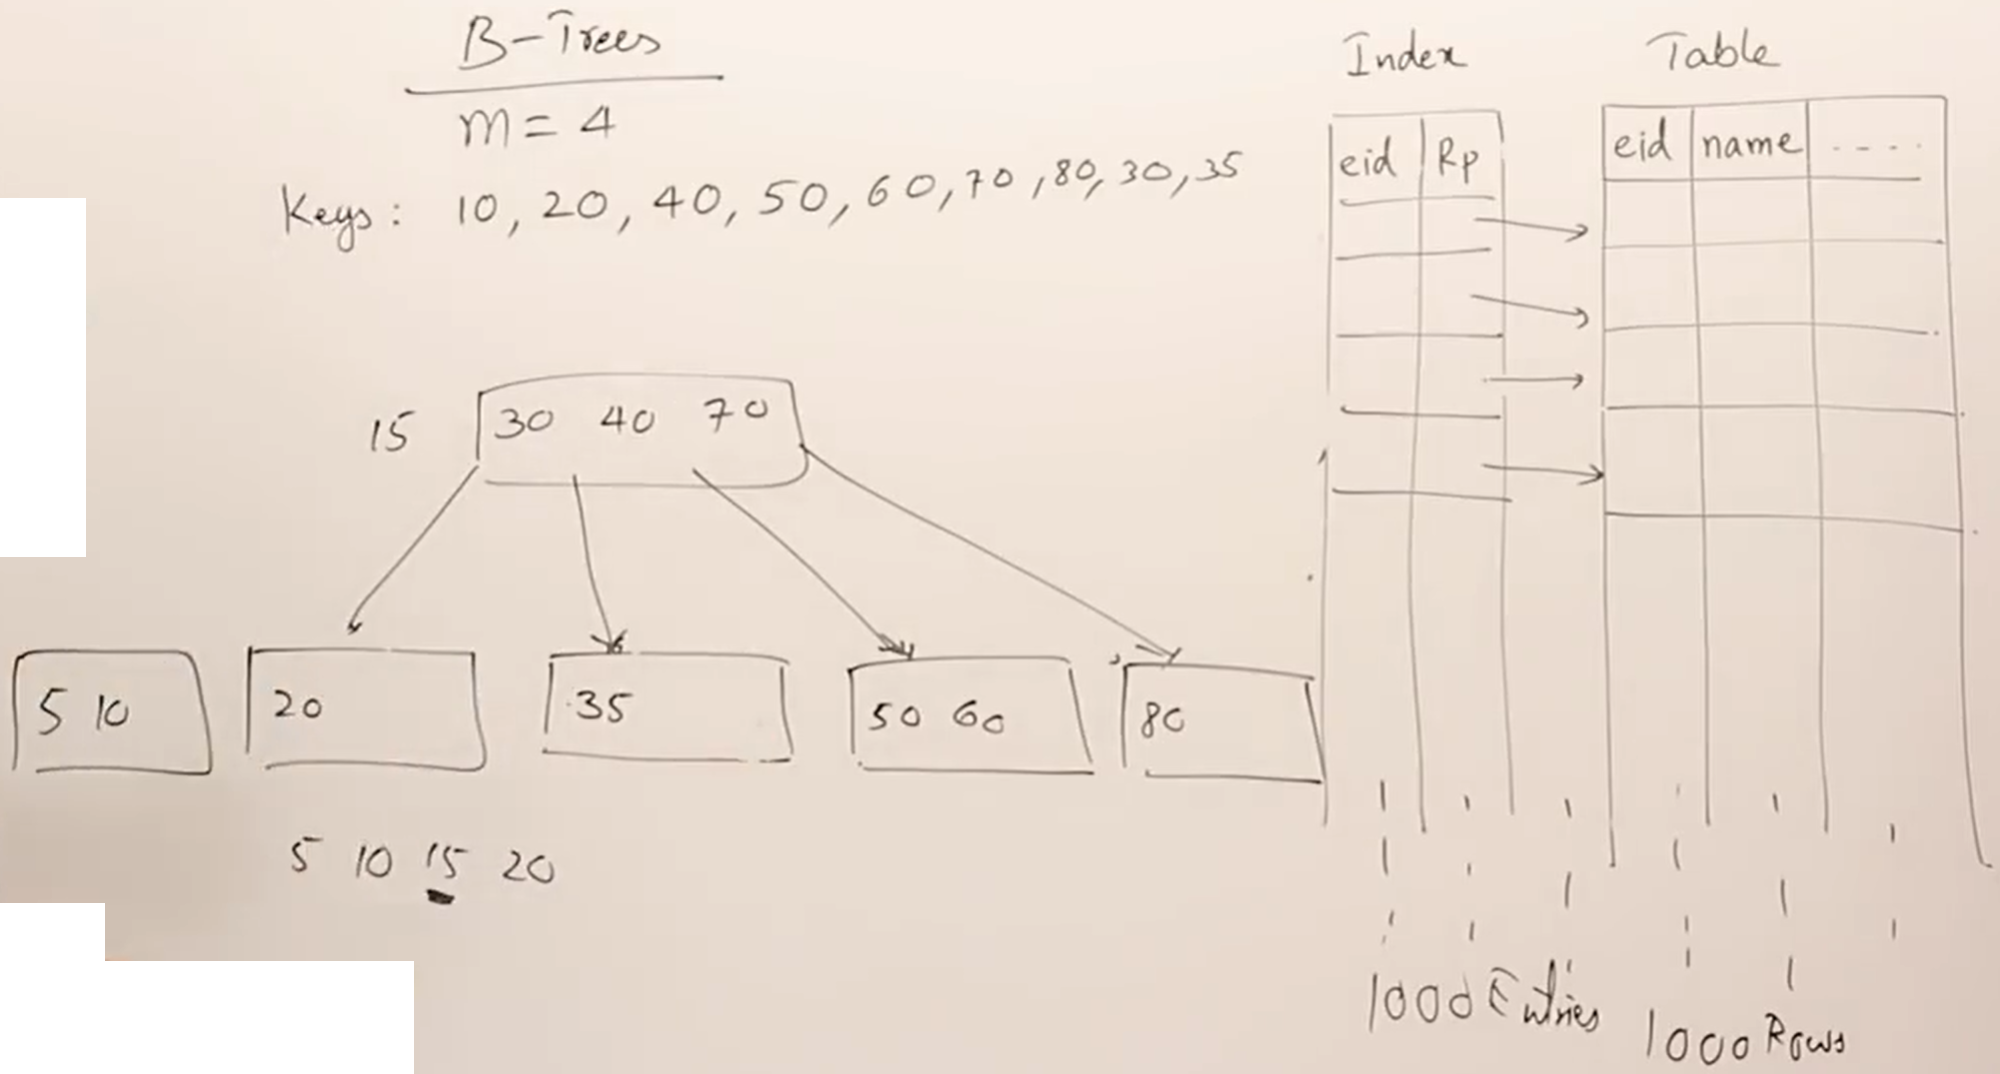 B-Trees
m = 4
Keys: 10, 20, 40, 50, 60, 70, 80, 30, 35
15
30 40 70
5 10
20
35
50 60
80
5 10 15 20
Index
eid Rp
1000 Entries
Table
eid name ----
1000 Rows